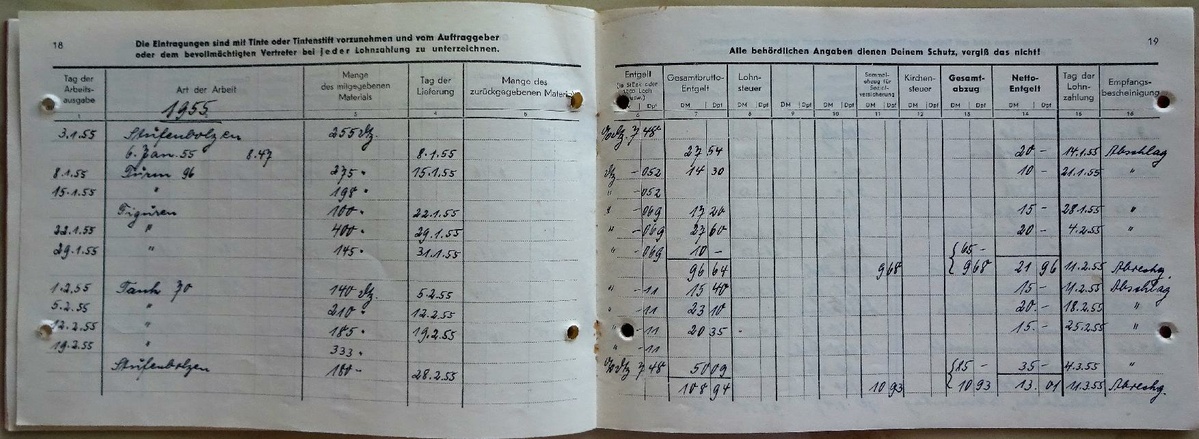 18
Die Eintragungen sind mit Tinte oder Tintenstift vorzunehmen und vom Auftraggeber
oder dem bevollmächtigten Vertreter bei jeder Lohnzahlung zu unterzeichnen.
Tag der Arbeits- ausgabe Art der Arbeit Menge des mitgegebenen Materials Tag der Lieferung Menge des zurückgegebenen Materials
1 3 4 5
1955
3.1.55 Stufenbolzen 255
6. Jan. 55 8.47 8.1.55
8.1.55 Türm 96 275 " 15.1.55
15.1.55 " 198 "
Figuren 100 " 22.1.55
22.1.55 " 400 " 29.1.55
29.1.55 " 145 " 31.1.55
1.2.55 Tank 70 140 5.2.55
5.2.55 " 210 " 12.2.55
12.2.55 " 185 " 19.2.55
19.2.55 " 333 "
Stufenbolzen 180 - 28.2.55
19
Alle behördlichen Angaben dienen Deinem Schutz, vergiß das nicht!
Entgelt Gesamtbrutto- Entgelt Lohn- steuer Sammel- abzug für Sozial- versicherung Kirchen- steuer Gesamt- abzug Netto- Entgelt Tag der Lohn- zahlung Empfangs- bescheinigung
DM Dpf DM Dpf DM Dpf DM Dpf DM Dpf DM Dpf DM Dpf DM Dpf
6 7 8 9 10 11 12 13 14 15 16
7 48
27 54 20 - 14.1.55 Abschlag
- 052 14 30 10 - 21.1.55 "
" - 052
" - 069 17 20 15 - 28.1.55 "
" - 069 27 60 20 - 4.2.55 "
" - 069 10 - 65 -
96 64 9 68 9 68 21 96 11.2.55 Abrechg.
" - 11 15 40 15 - 11.2.55 Abschlag
" - 11 23 10 20 - 18.2.55 "
" - 11 20 35 15 - 25.2.55 "
" - 11
7 48 50 09 85 - 35 - 4.3.55 "
108 94 10 93 10 93 13 01 11.3.55 Abrechg.